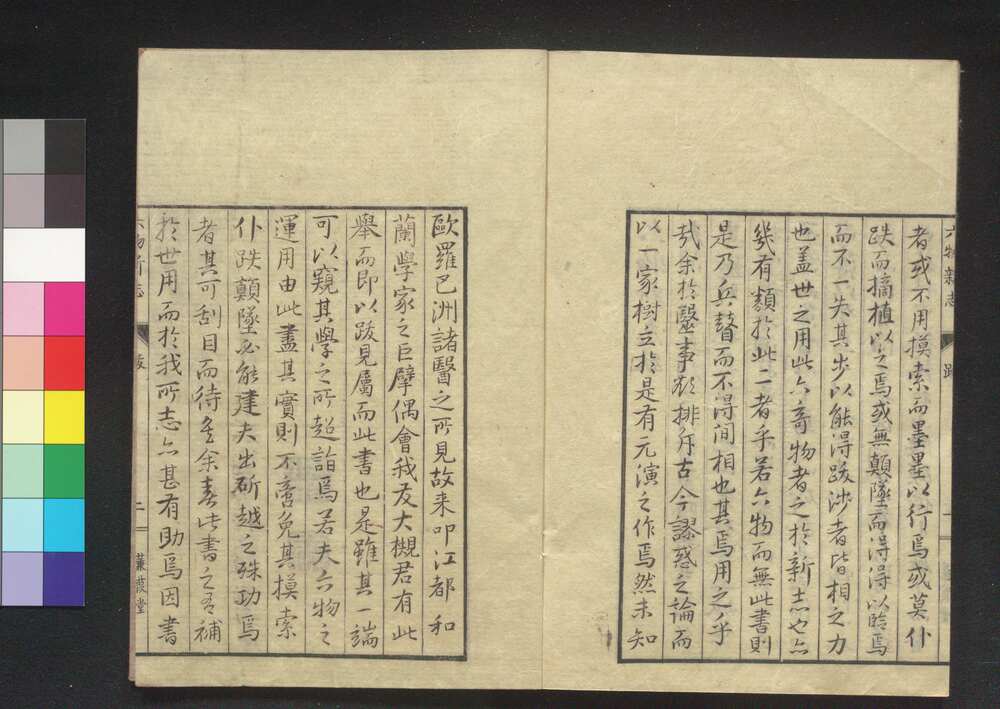 六物新志 跋
者或不用摸索而墨墨以行焉或莫仆
跌而擿植以之焉或無顛墜而得得以聆焉
而不一失其步以能得跋涉者皆相之力
也盖世之用此六奇物者之於新志也亦
幾有類於此二者乎若六物而無此書則
是乃兵瞽而不得間相也其焉用之乎
哉余於醫事欲排斥古今謬惑之論而
以一家樹立於是有元演之作焉然未知
歐羅巴洲諸醫之所見故来叩江都和
蘭學家之巨擘偶會我友大槻君有此
舉而即以跋見屬而此書也是雖其一端
可以窺其學之所超詣焉若夫六物之
運用由此盡其實則不啻免其摸索
仆跌顛墜必能建夫出斫越之殊功焉
者其可刮目而待矣余喜此書之有補
於世用而於我所志亦甚有助焉因書
六物新志 跋 二 蒹葭堂